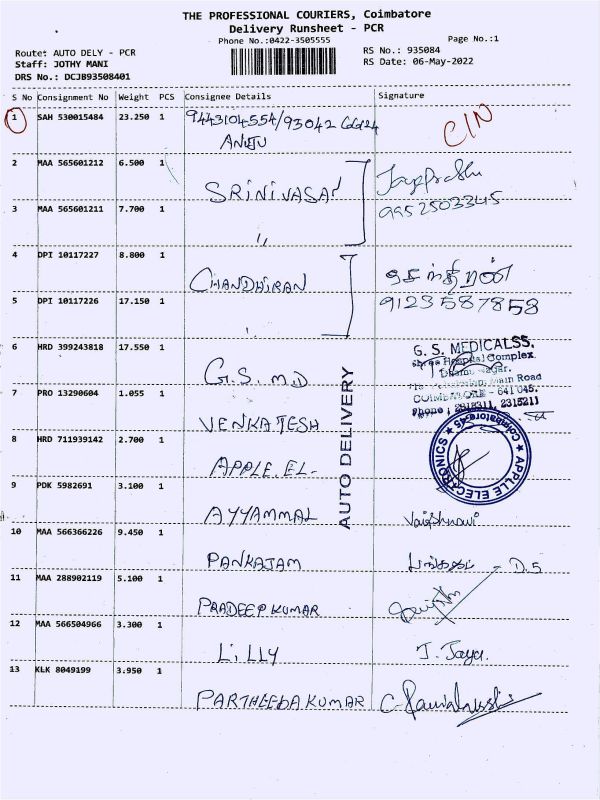 THE PROFESSIONAL COURIERS, Coimbatore
Delivery Runsheet - PCR
Phone No.:0422-3505555
Page No.:1
Route: AUTO DELY - PCR
Staff: JOTHY MANI
DRS No.: DCJB93508401
RS No.: 935084
RS Date: 06-May-2022
S No Consignment No Weight PCS Consignee Details Signature
1 SAH 530015484 23.250 1 9443104554/93042
CIN
2 MAA 565601212 6.500 1 SRINIVASAN
3 MAA 565601211 7.700 1 "
9952503345
4 DPI 10117227 8.800 1 CHANDHIRAN
5 DPI 10117226 17.150 1
9123587858
6 HRD 399243818 17.550 1 G.S. M.D
G. S. MEDICALSS.
Hospital Complex.
Nagar.
Main Road
COIMBATORE - 641 045.
Phone : 2318311, 2315211
7 PRO 13290604 1.055 1 VENKATESH
8 HRD 711939142 2.700 1 APPLE. EL-
★ APPLLE ELECTRONICS ★ Coimbatore-45
AUTO DELIVERY
9 PDK 5982691 3.100 1 AYYAMMAL Vaishnavi
10 MAA 566366226 9.450 1 PANKAJAM - D.S
11 MAA 288902119 5.100 1 PRADEEP KUMAR
12 MAA 566504966 3.300 1 LILLY J. Jaya.
13 KLK 8049199 3.950 1 PARTHEEBA KUMAR